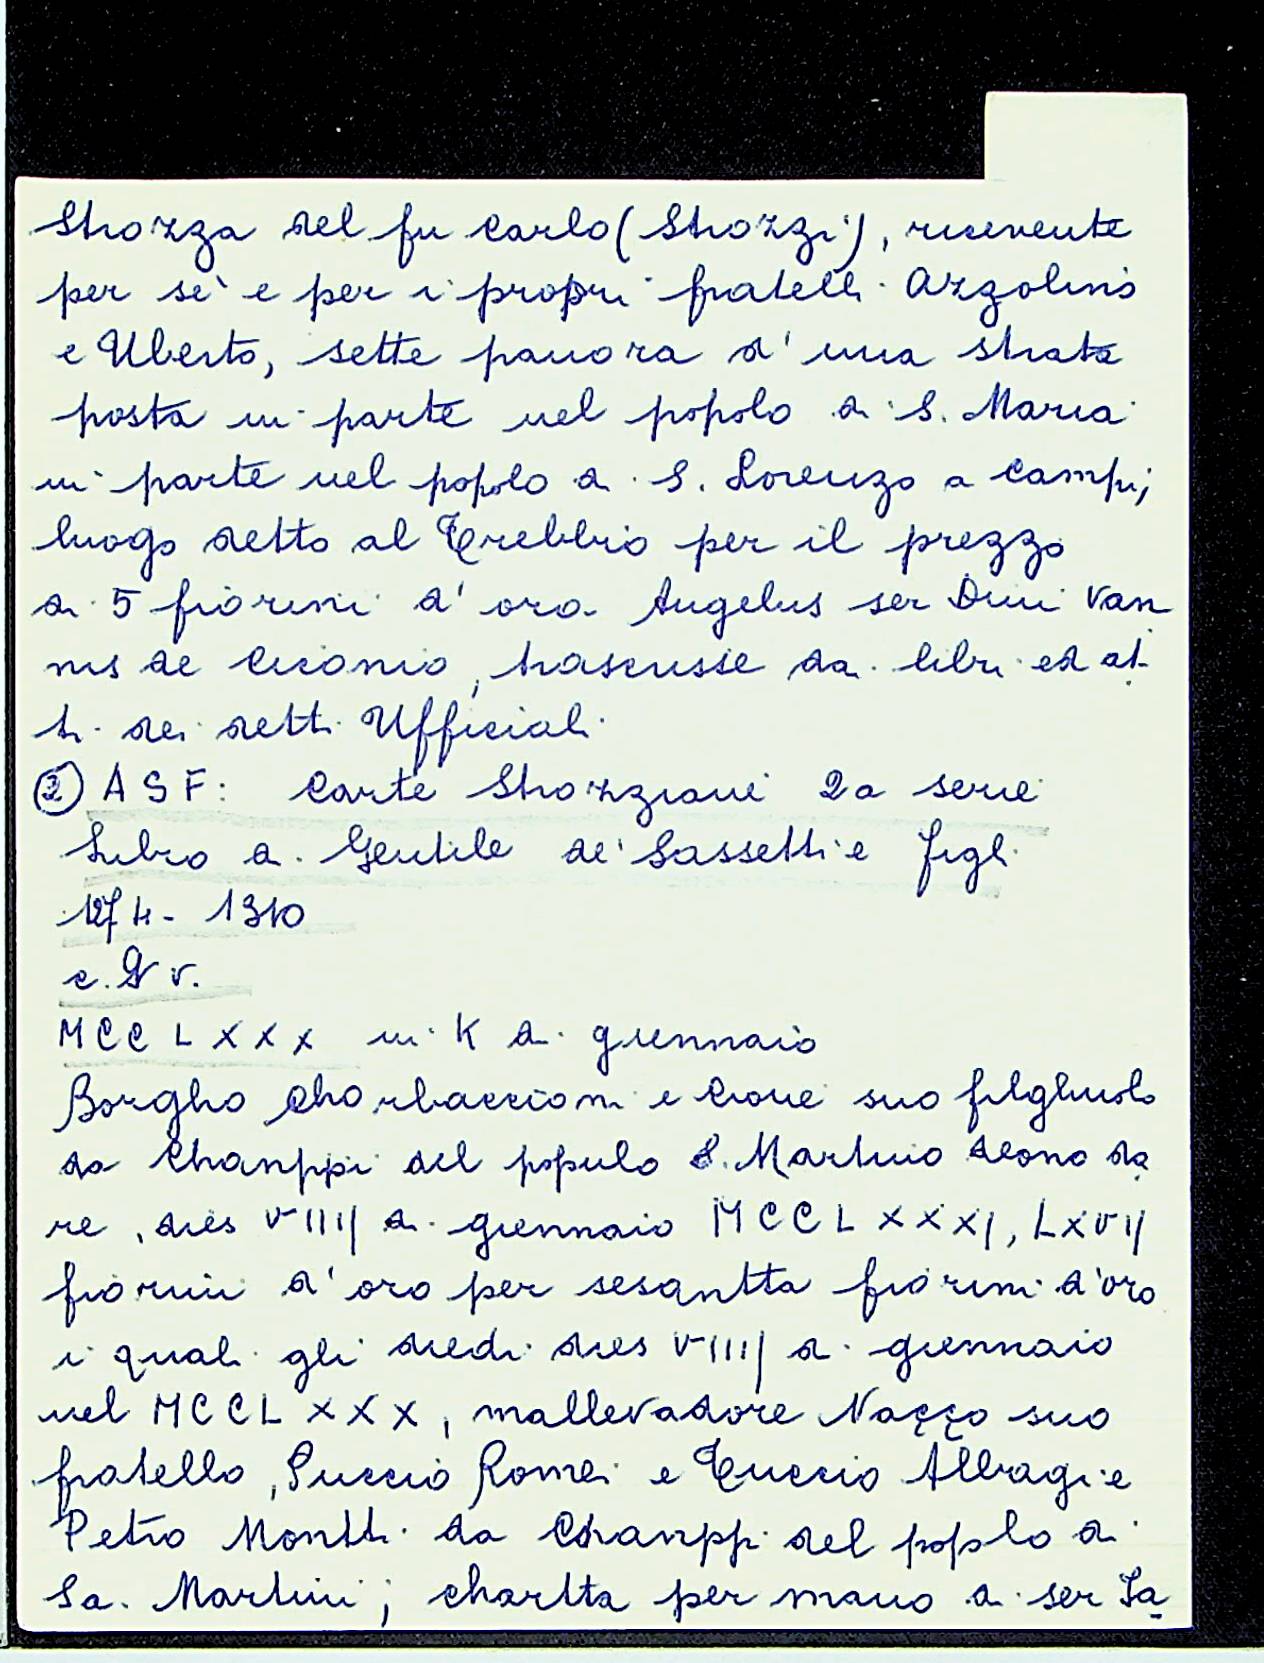 Strozza del fu Carlo (Strozzi), ricevente
per sè e per i propri fratelli Azzolino
e Uberto, sette panora d'una strata
posta in parte nel popolo di S. Maria
in parte nel popolo di S. Lorenzo a Campi,
luogo detto al Trebbio per il prezzo
di 5 fiorini d'oro. Angelus ser Dini Van
nis de Ciconio, trascrisse da libri ed at-
ti dei detti Ufficiali
② ASF: Carte Strozziane 2a serie
Libro di Gentile de' Sassetti e figli
1274-1310
c. v.
MCCLXXX in K di giennaio
Borgho Chorbaccioni e Cione suo filgliuolo
da Chanppi del populo S. Martino deono da
re, dies VIIII di giennaio MCCLXXXI, LXVII
fiorini d'oro per sesantta fiorini d'oro
i quali gli diedi dies VIIII di giennaio
nel MCCLXXX, mallevadore Naçço suo
fratello, Puccio Romei e Tuccio Albragi e
Petro Montti da Chanppi del popolo di
Sa. Martini; chartta per mano di ser Sa